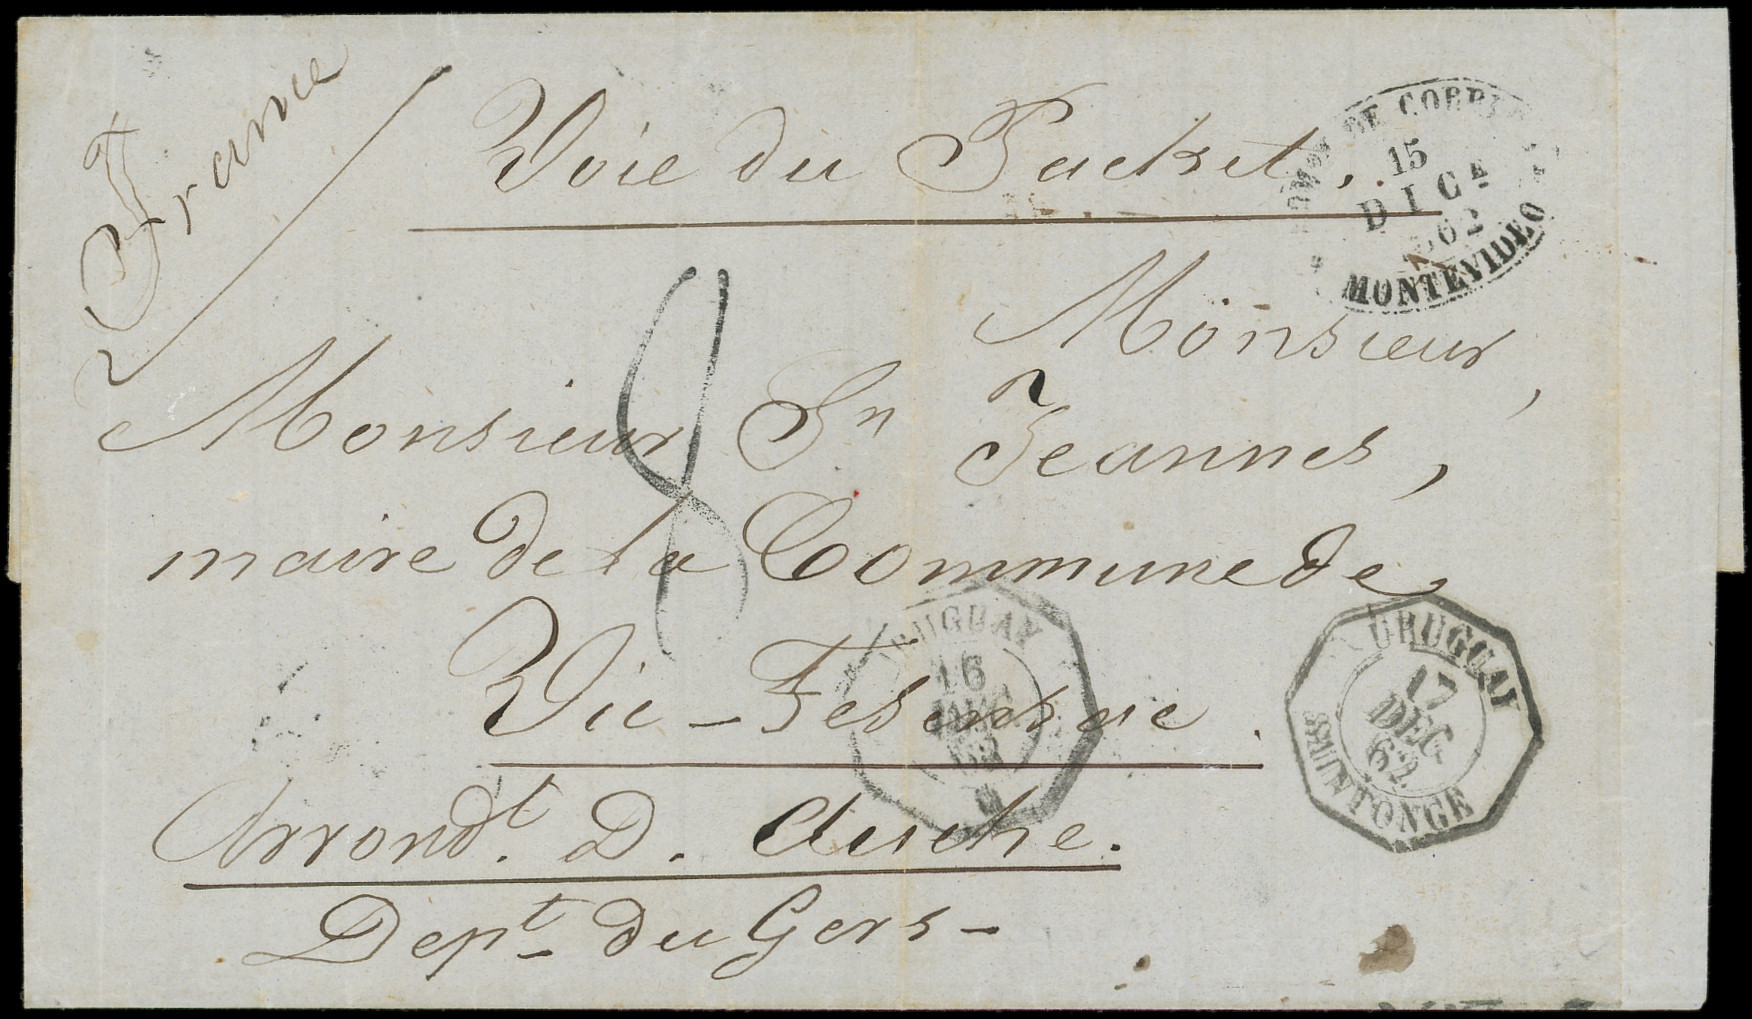 France
Voie du Packet.
DE CORREOS
15
DICE
862
MONTEVIDEO
Monsieur,
Monsieur Sn Jeannes,
8
maire de la Commune de
Vic-Fesensac.
URUGUAY
16
DEC
62
URUGUAY
17
DEC
62
SAINTONGE
Arrondt. D. Auche.
Dept. du Gers-